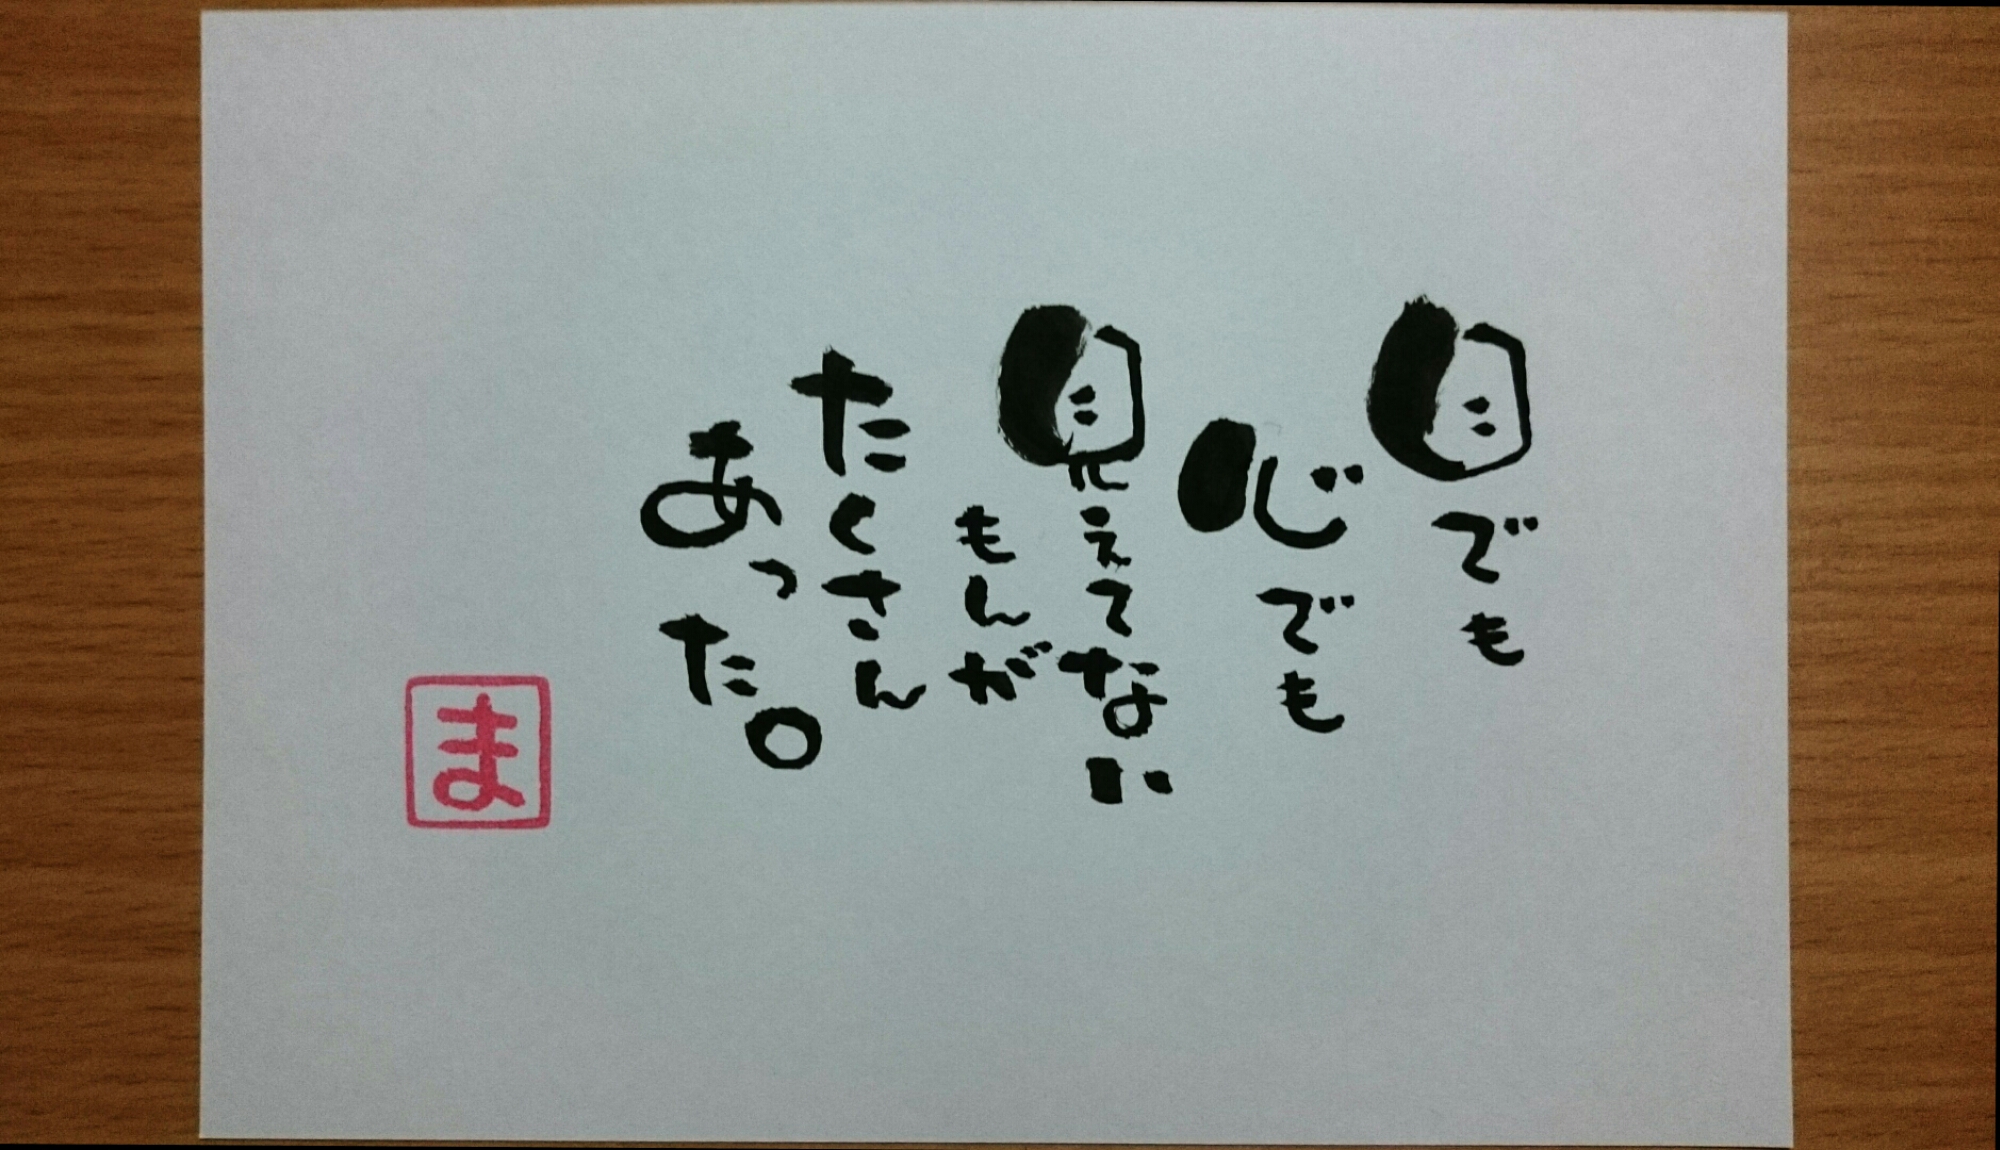 目でも
心でも
見えてない
もんが
たくさん
あった。
ま